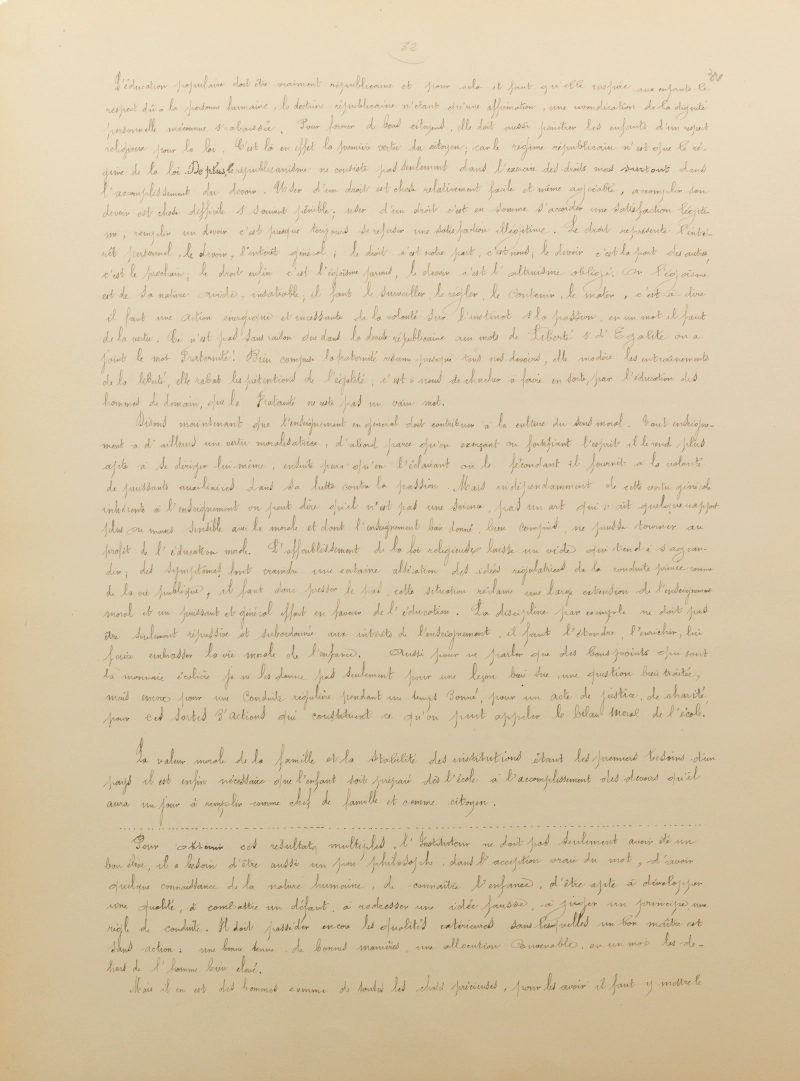 83
L'éducation populaire doit être vraiment républicaine et pour cela il faut qu'elle inspire aux enfants le
respect dû à la personne humaine, la doctrine républicaine n'étant qu'une affirmation, une revendication de la dignité
personnelle méconnue, rabaissée. Pour former de bons citoyens, elle doit aussi pénétrer les enfants d'un respect
religieux pour la loi. C'est là en effet la première vertu du citoyen; car le régime républicain n'est que le ré-
gime de la loi. De plus le républicanisme ne consiste pas seulement dans l'exercice des droits mais surtout dans
l'accomplissement du devoir. User d'un droit est chose relativement facile et même agréable, accomplir son
devoir est chose difficile et souvent pénible; user d'un droit c'est en somme s'accorder une satisfaction légiti-
me, remplir un devoir c'est presque toujours se refuser une satisfaction illégitime. Le droit représente l'inté-
rêt personnel, le devoir, l'intérêt général; le droit c'est notre part, c'est nous, le devoir c'est la part des autres,
c'est le prochain; le droit enfin c'est l'égoïsme permis, le devoir c'est l'altruisme obligé. Or l'égoïsme
est de sa nature avide, insatiable, il faut le surveiller, le régler, le contenir, le mater, c'est-à-dire
il faut une action énergique et incessante de la volonté sur l'instinct et la passion, en un mot il faut
de la vertu. Ce n'est pas sans raison que dans la devise républicaine aux mots de Liberté et d'Égalité on a
joint le mot Fraternité. Bien comprise la fraternité résume presque tous nos devoirs, elle modère les entraînements
de la liberté, elle rabat les prétentions de l'égalité, c'est à nous de chercher à faire en sorte, par l'éducation des
hommes de demain, que la Fraternité ne reste pas un vain mot.
Disons maintenant que l'enseignement en général doit contribuer à la culture du sens moral. Tout enseigne-
ment a d'ailleurs une vertu moralisatrice, d'abord parce qu'en exerçant ou fortifiant l'esprit il le rend plus
apte à se diriger lui-même, ensuite parce qu'en l'éclairant ou le fécondant il fournit à la volonté
de puissants auxiliaires dans sa lutte contre la passion. Mais indépendamment de cette vertu générale
inhérente à l'enseignement on peut dire qu'il n'est pas une science, pas un art qui n'ait quelque rapport
plus ou moins sensible avec la morale et dont l'enseignement bien donné, bien compris, ne puisse tourner au
profit de l'éducation morale. L'affaiblissement de la foi religieuse laisse un vide qui tend à s'agran-
dir; des symptômes font craindre une certaine altération des idées régulatrices de la conduite privée comme
de la vie publique, il faut donc presser le pas, cette situation réclame une large extension de l'enseignement
moral et un puissant et général effort en faveur de l'éducation. La discipline par exemple ne doit pas
être seulement répressive et subordonnée aux intérêts de l'enseignement, il faut l'étendre, l'enrichir, lui
faire embrasser la vie morale de l'enfance. Aussi pour ne parler que des bons points qui sont
la monnaie écolière je ne les donne pas seulement pour une leçon bien sue, une question bien traitée,
mais encore pour une conduite régulière pendant un temps donné, pour un acte de justice, de charité,
pour ces sortes d'actions qui constituent ce qu'on peut appeler le bilan moral de l'école.
La valeur morale de la famille et la stabilité des institutions étant les premiers besoins d'un
pays il est enfin nécessaire que l'enfant soit préparé dès l'école à l'accomplissement des devoirs qu'il
aura un jour à remplir comme chef de famille et comme citoyen.
Pour obtenir ces résultats multiples, l'Instituteur ne doit pas seulement avoir été un
bon élève, il a besoin d'être aussi un peu philosophe dans l'acception vraie du mot, d'avoir
quelque connaissance de la nature humaine, de connaître l'enfance, d'être apte à développer
une qualité, à combattre un défaut, à redresser une idée fausse, à juger un principe, une
règle de conduite. Il doit posséder encore les qualités extérieures sans lesquelles un bon maître est
sans action: une bonne tenue, de bonnes manières, une allocution convenable, en un mot les de-
hors de l'homme bien élevé.
Mais il en est des hommes comme de toutes les choses précieuses, pour les avoir il faut y mettre le